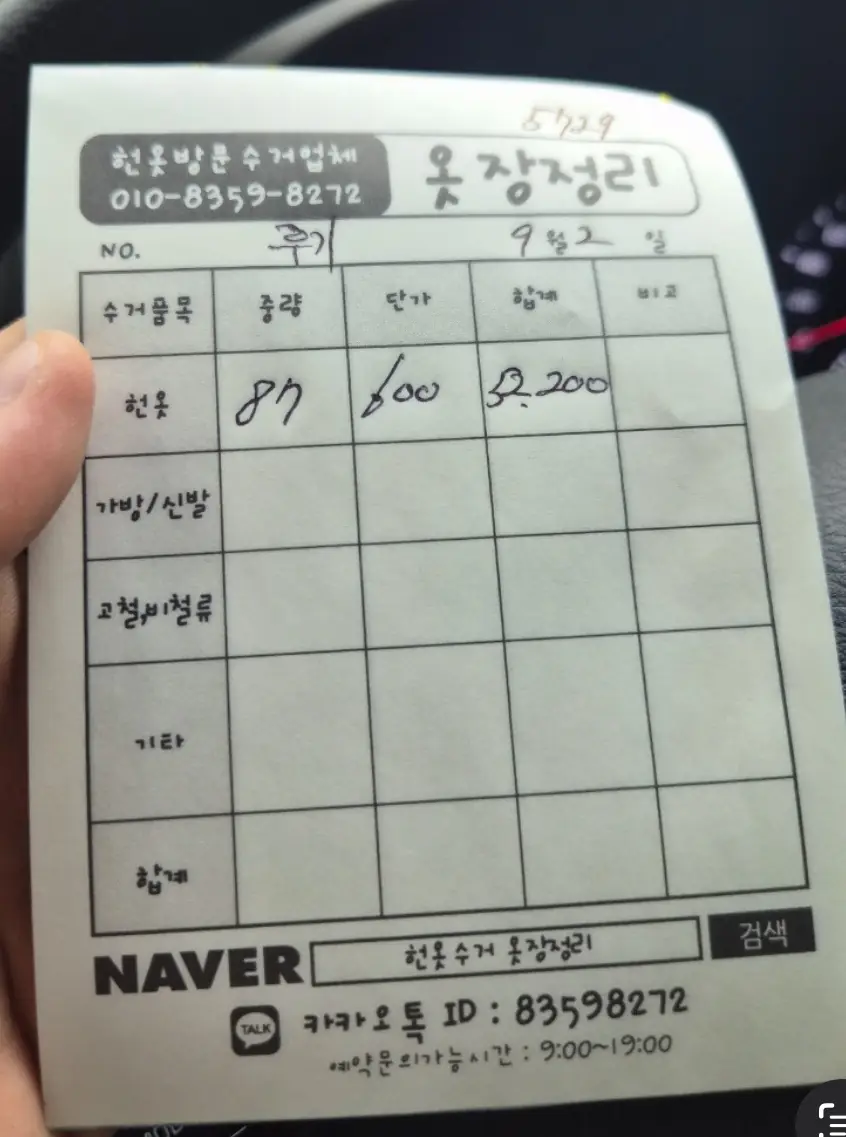 5729
헌옷방문수거업체
010-8359-8272
옷장정리
NO. 후기 9월 2 일
수거품목 중량 단가 합계 비고
헌옷 87 600 52.200
가방/신발
고철,비철류
기타
합계
NAVER 헌옷수거 옷장정리 검색
TALK 카카오톡 ID : 83598272
예약문의가능시간 : 9:00~19:00